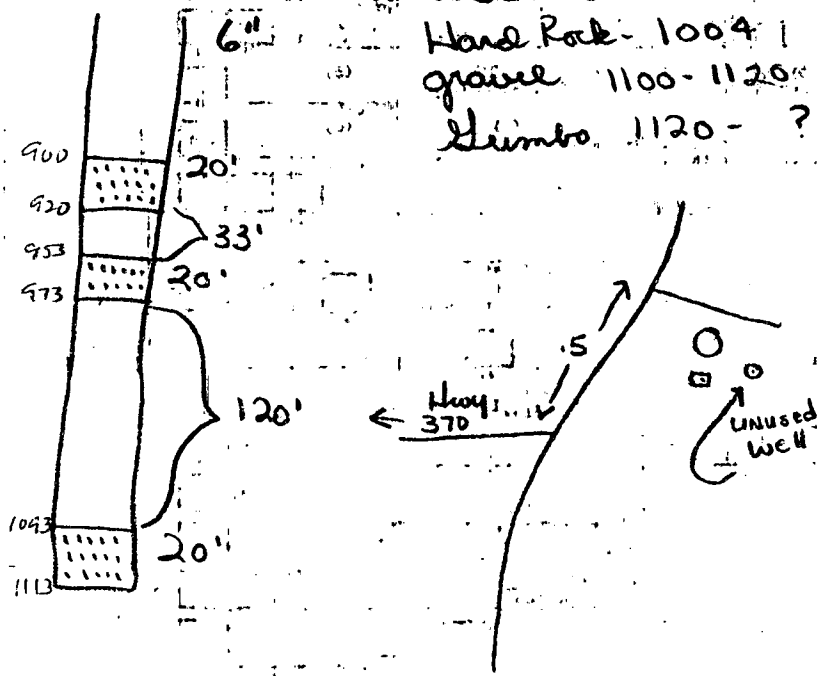 6"
Hard Rock - 1004
gravel 1100-1120
Gumbo 1120 - ?
900
20'
920
33'
953
20'
973
120'
1093
20'
1113
.5
Hwy
370
UNUSED
WELL